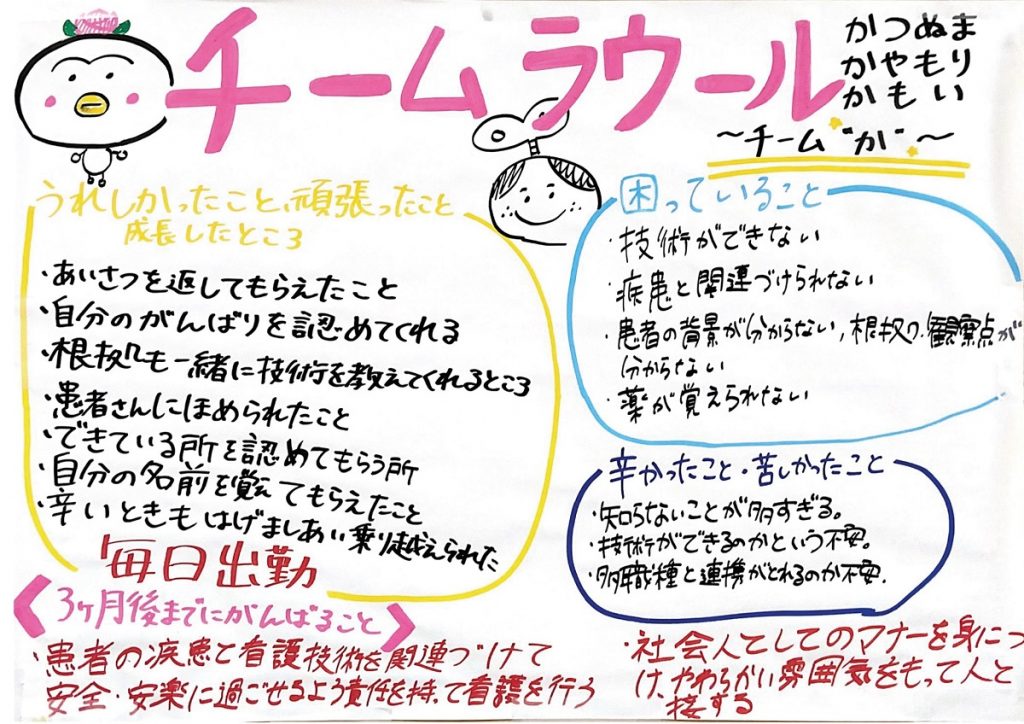 チームラウール
かつぬま
かやもり
かもい
～チーム"か"～
うれしかったこと、頑張ったこと
成長したところ
・あいさつを返してもらえたこと
・自分のがんばりを認めてくれる
・根拠も一緒に技術を教えてくれるところ
・患者さんにほめられたこと
・できている所を認めてもらう所
・自分の名前を覚えてもらえたこと
・辛いときもはげましあい乗り越えられた
毎日出勤
困っていること
・技術ができない
・疾患と関連づけられない
・患者の背景が分からない,根拠の.観察点が
分からない
・薬が覚えられない
辛かったこと・苦しかったこと
・知らないことが多すぎる。
・技術ができるのかという不安。
・多職種と連携がとれるのか不安.
3ヶ月後までにがんばること
・患者の疾患と看護技術を関連づけて
安全・安楽に過ごせるよう責任を持って看護を行う
・社会人としてのマナーを身につ
け、やわらかい雰囲気をもって人と
接する